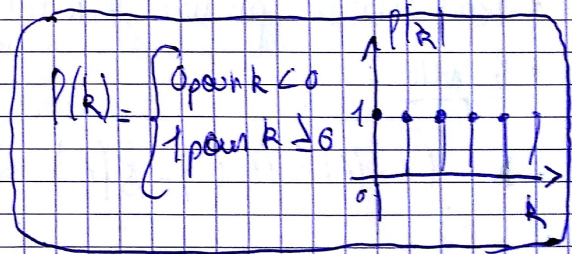 P(k) = { 0 pour k < 0
1 pour k ≥ 0
P(k)
1
0
k